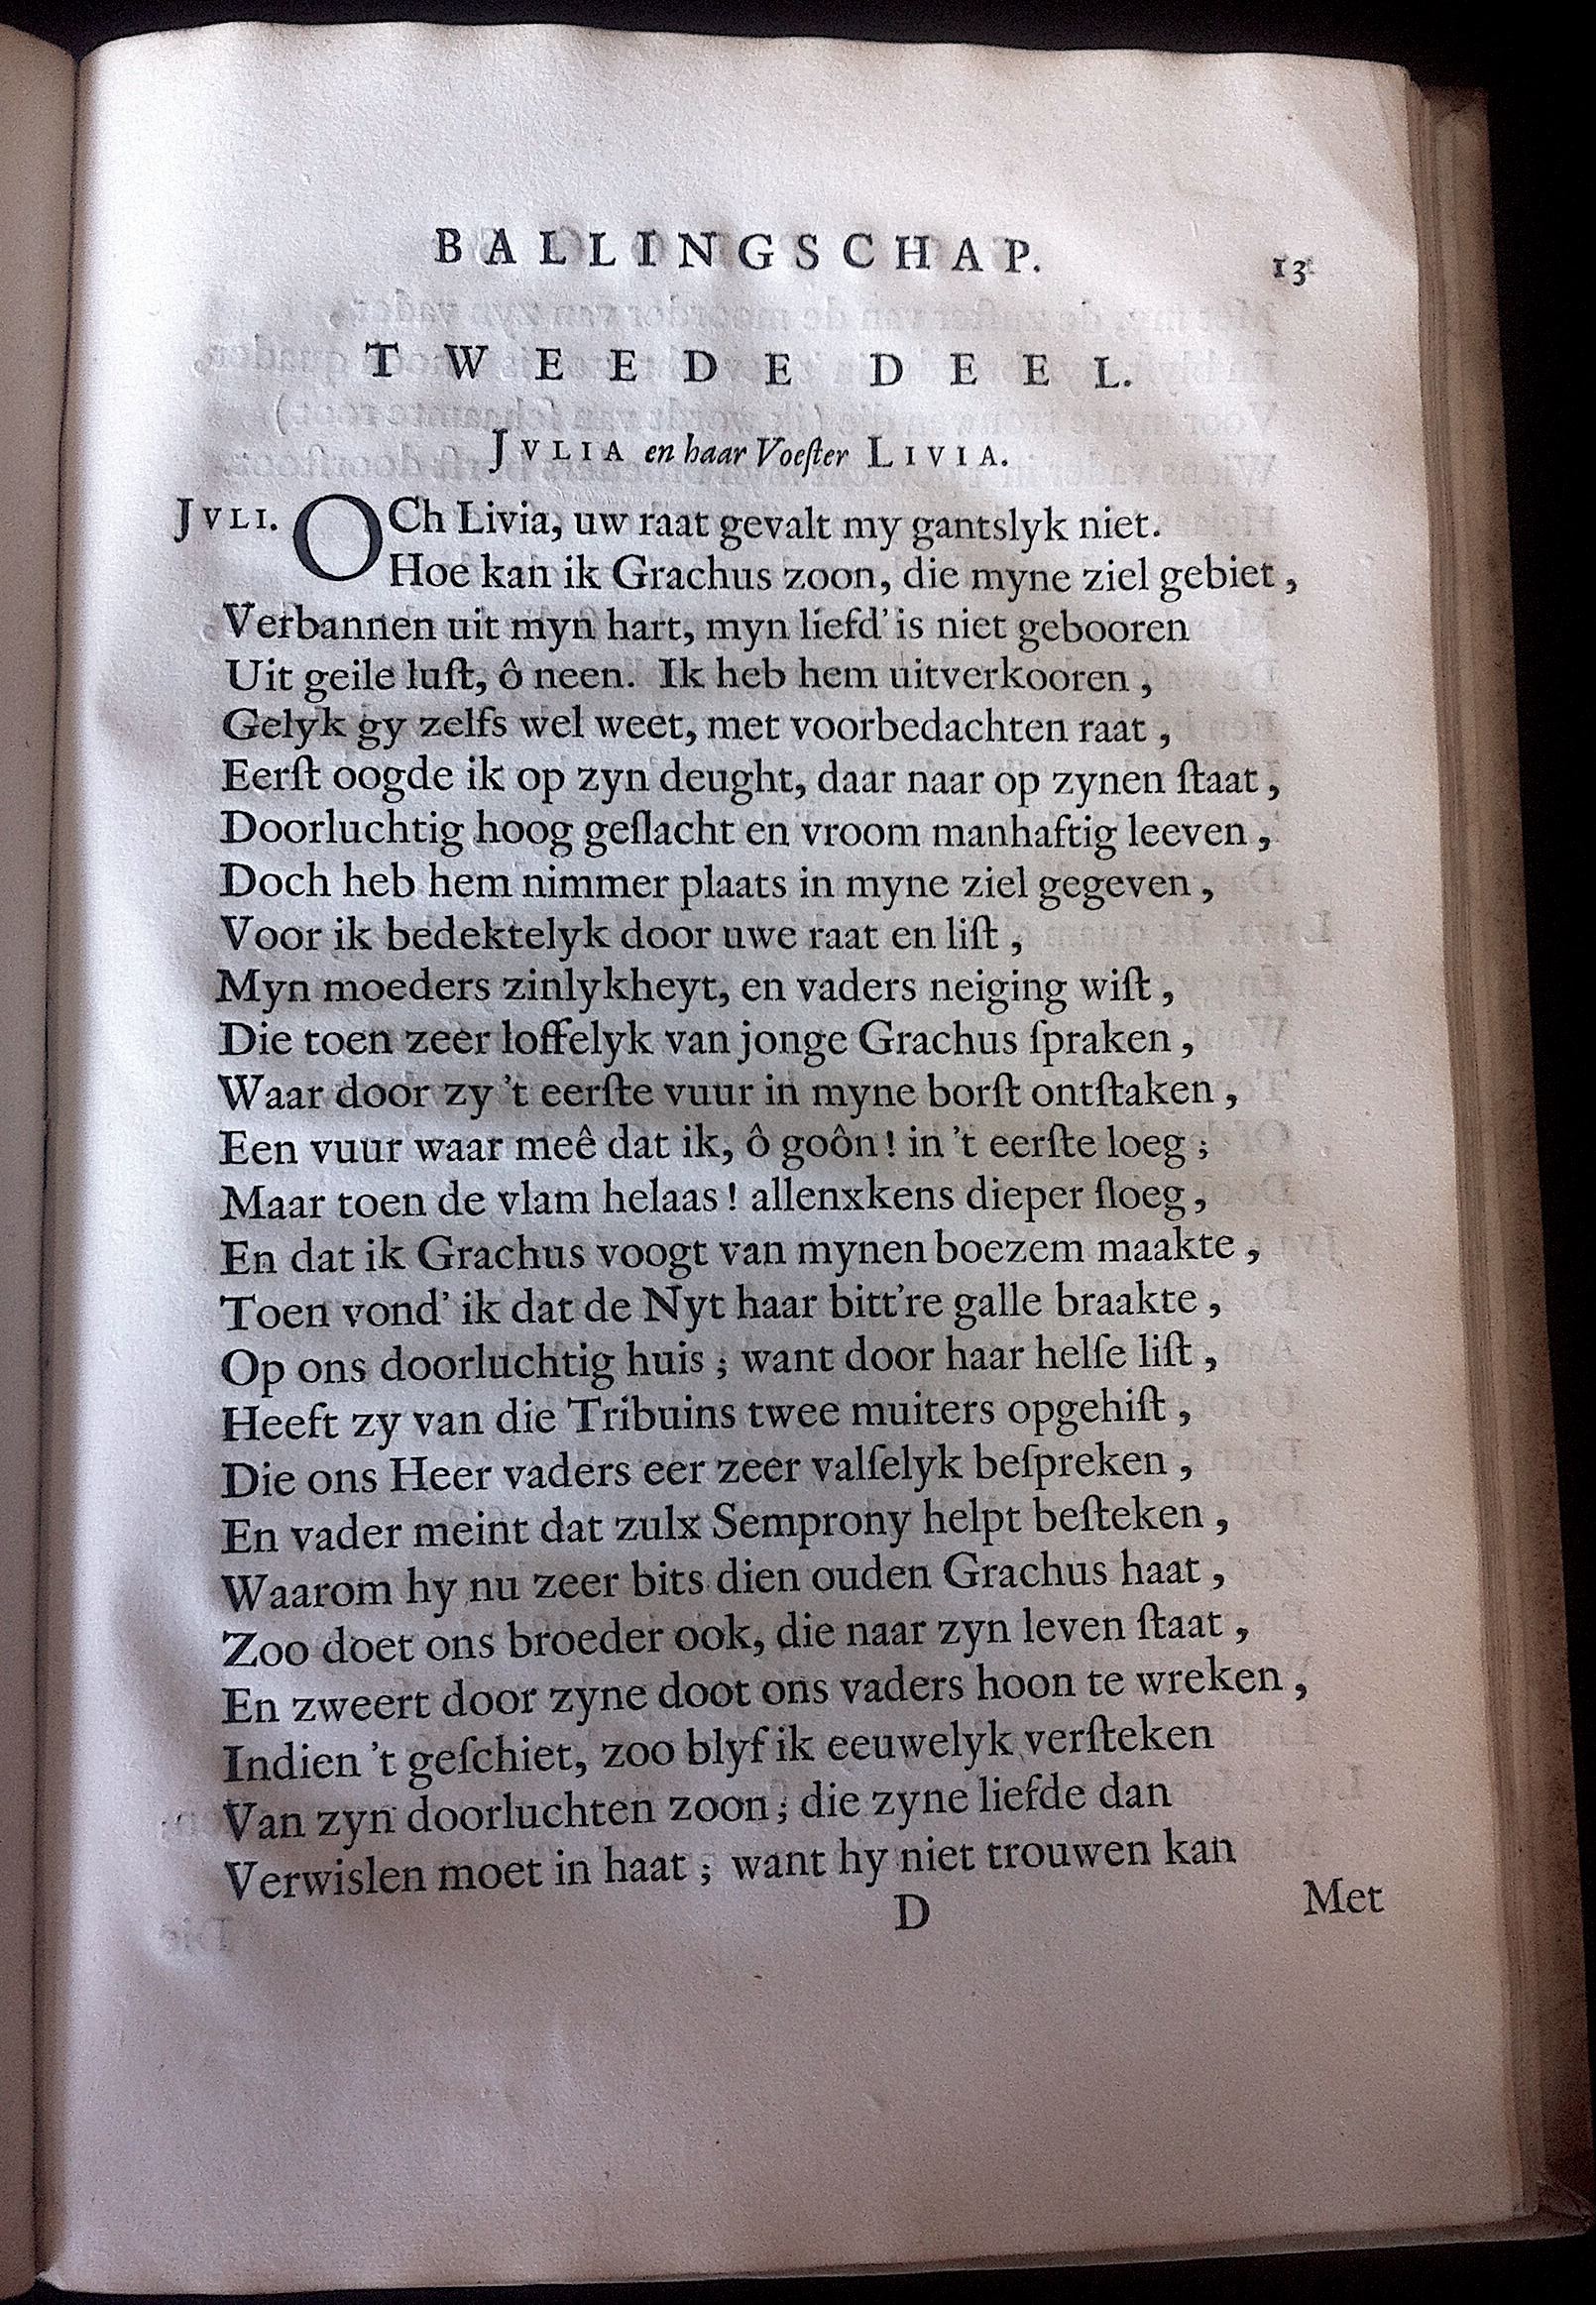 BALLINGSCHAP. 13
TWEEDE DEEL.
JVLIA en haar Voeſter LIVIA.
JVLI. OCh Livia, uw raat gevalt my gantslyk niet.
Hoe kan ik Grachus zoon, die myne ziel gebiet,
Verbannen uit myn hart, myn liefd' is niet gebooren
Uit geile luſt, ô neen. Ik heb hem uitverkooren,
Gelyk gy zelfs wel weet, met voorbedachten raat,
Eerſt oogde ik op zyn deught, daar naar op zynen ſtaat,
Doorluchtig hoog geſlacht en vroom manhaftig leeven,
Doch heb hem nimmer plaats in myne ziel gegeven,
Voor ik bedektelyk door uwe raat en liſt,
Myn moeders zinlykheyt, en vaders neiging wiſt,
Die toen zeer loffelyk van jonge Grachus ſpraken,
Waar door zy 't eerſte vuur in myne borſt ontſtaken,
Een vuur waar meê dat ik, ô goôn! in 't eerſte loeg;
Maar toen de vlam helaas! allenxkens dieper ſloeg,
En dat ik Grachus voogt van mynen boezem maakte,
Toen vond' ik dat de Nyt haar bitt're galle braakte,
Op ons doorluchtig huis; want door haar helſe liſt,
Heeft zy van die Tribuins twee muiters opgehiſt,
Die ons Heer vaders eer zeer valſelyk beſpreken,
En vader meint dat zulx Semprony helpt beſteken,
Waarom hy nu zeer bits dien ouden Grachus haat,
Zoo doet ons broeder ook, die naar zyn leven ſtaat,
En zweert door zyne doot ons vaders hoon te wreken,
Indien 't geſchiet, zoo blyf ik eeuwelyk verſteken
Van zyn doorluchten zoon; die zyne liefde dan
Verwislen moet in haat; want hy niet trouwen kan
D Met